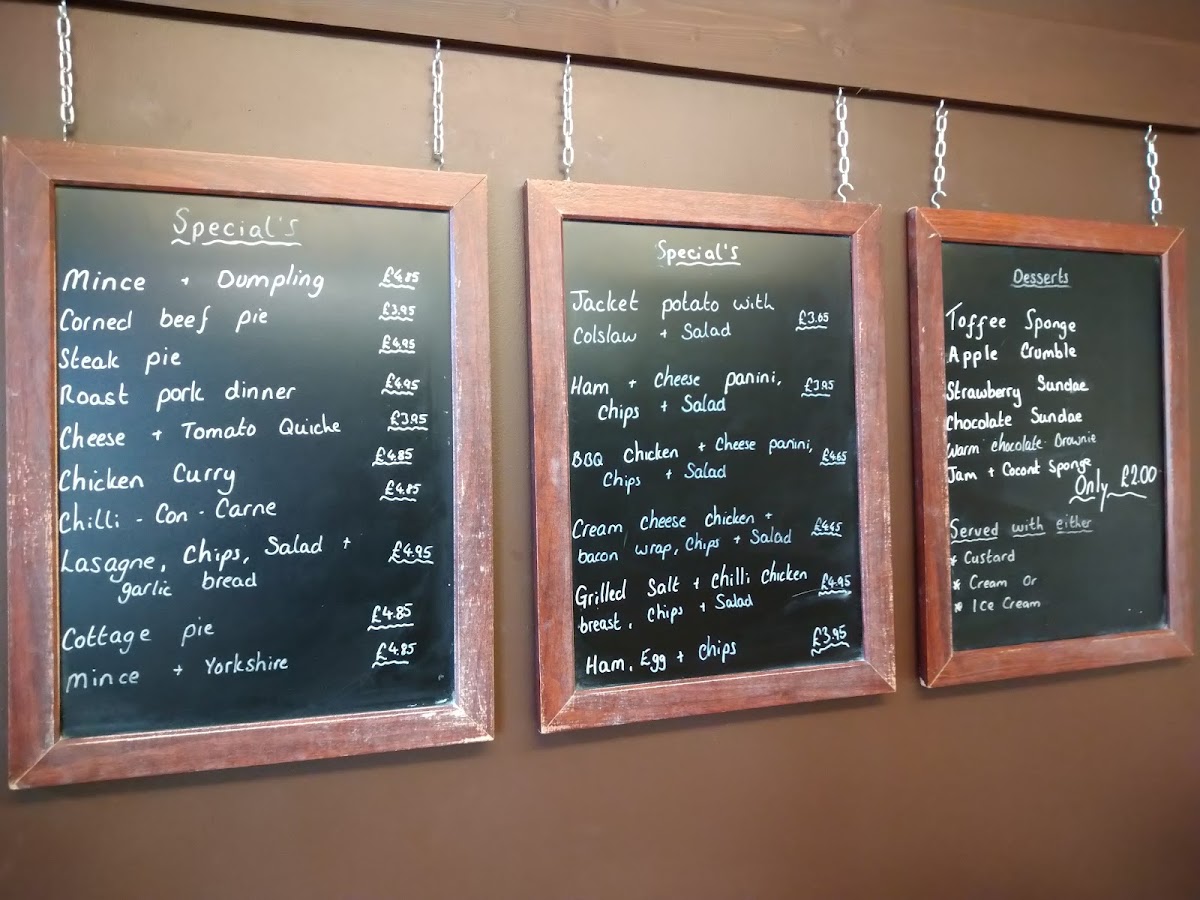 Special's
Mince + Dumpling £4.85
Corned beef pie £3.95
Steak pie £4.95
Roast pork dinner £4.95
Cheese + Tomato Quiche £3.95
Chicken Curry £4.85
Chilli - Con - Carne £4.85
Lasagne, Chips, Salad + £4.95
garlic bread
Cottage pie £4.85
Mince + Yorkshire £4.85
Special's
Jacket potato with
Colslaw + Salad £3.65
Ham + cheese panini, £3.95
chips + Salad
BBQ Chicken + Cheese panini, £4.65
Chips + Salad
Cream cheese chicken +
bacon wrap, Chips + Salad £4.45
Grilled Salt + chilli chicken £4.95
breast, chips + Salad
Ham, Egg + chips £3.95
Desserts
Toffee Sponge
Apple Crumble
Strawberry Sundae
Chocolate Sundae
Warm chocolate Brownie
Jam + Coconut Sponge
Only £2.00
Served with either
* Custard
* Cream Or
* Ice Cream